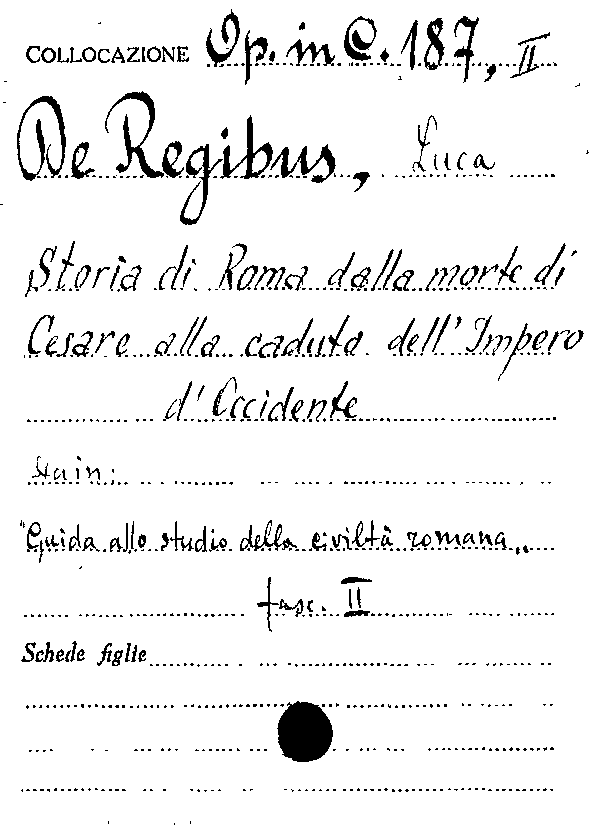 COLLOCAZIONE Op. in C. 187, II
De Regibus, Luca
Storia di Roma dalla morte di
Cesare alla caduta dell' Impero
d'Occidente
Sta in:
"Guida allo studio della civiltà romana„
fasc. II
Schede figlie